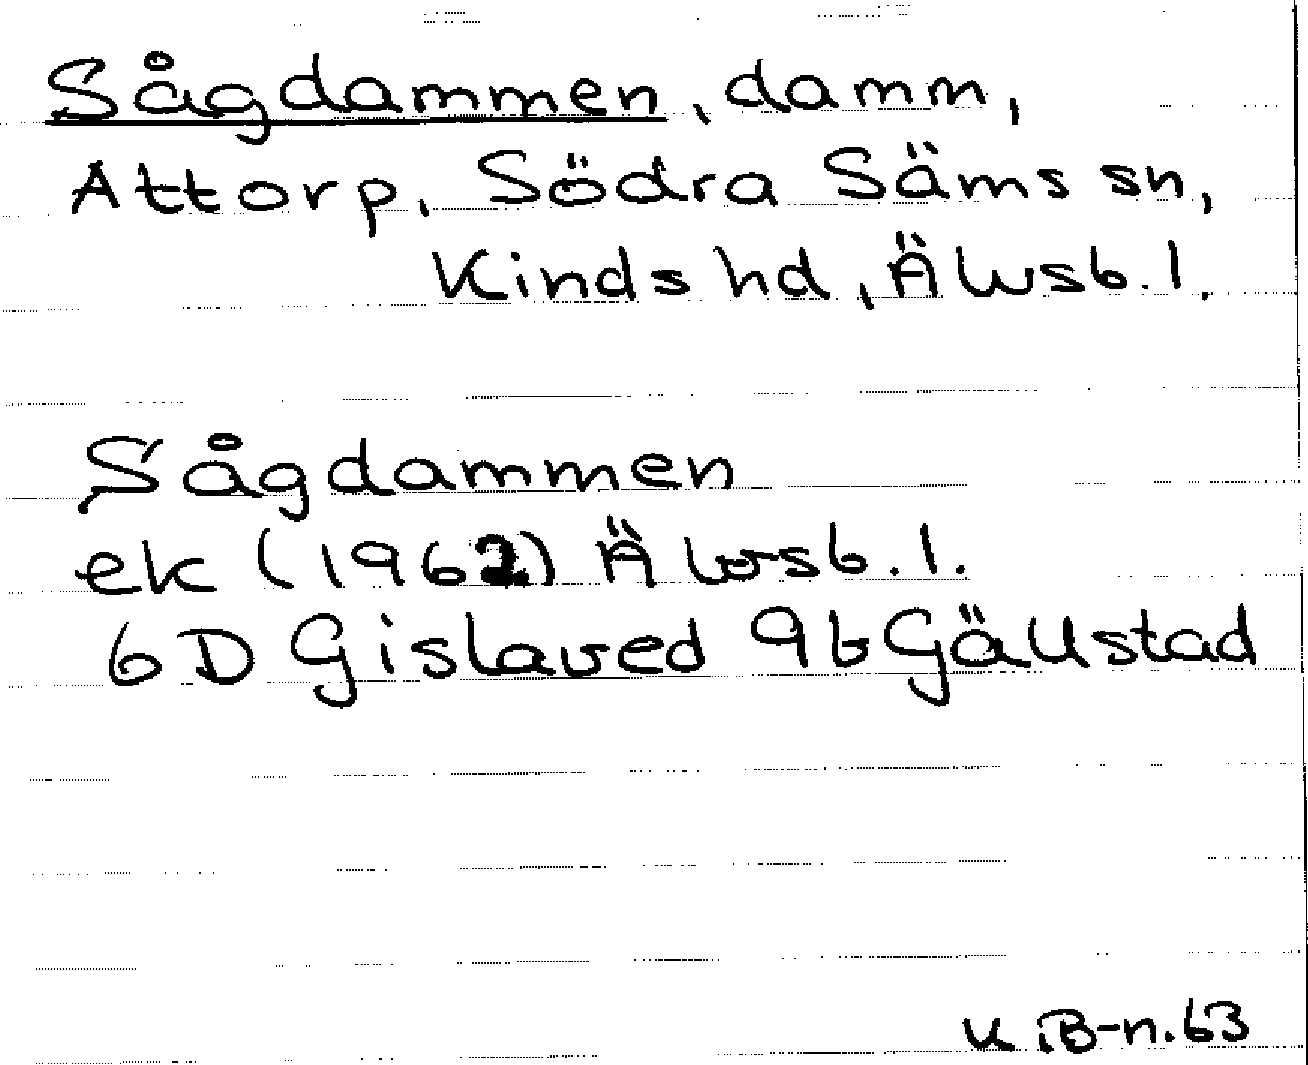 Sågdammen, damm,
Attorp, Södra Säms sn,
Kinds hd, Älvsb. l.
Sågdammen
ek (1962) Älvsb. l.
6D Gislaved 9b Gällstad
K iB-n. 63